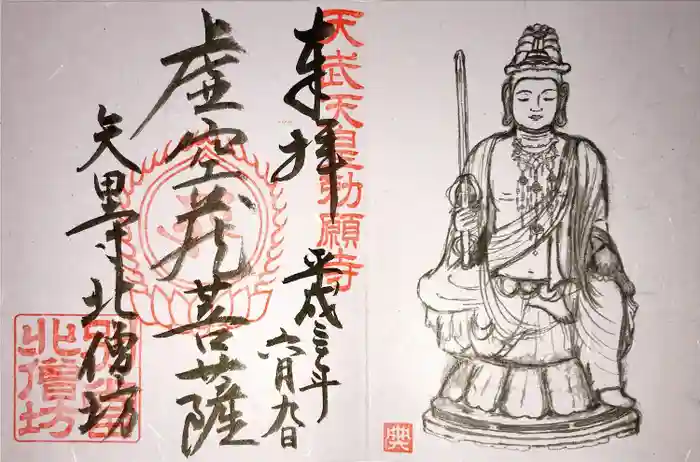 天武天皇勅願寺
奉拝
平成三十年
六月九日
虚空蔵菩薩
矢田寺北僧坊
北僧坊
典